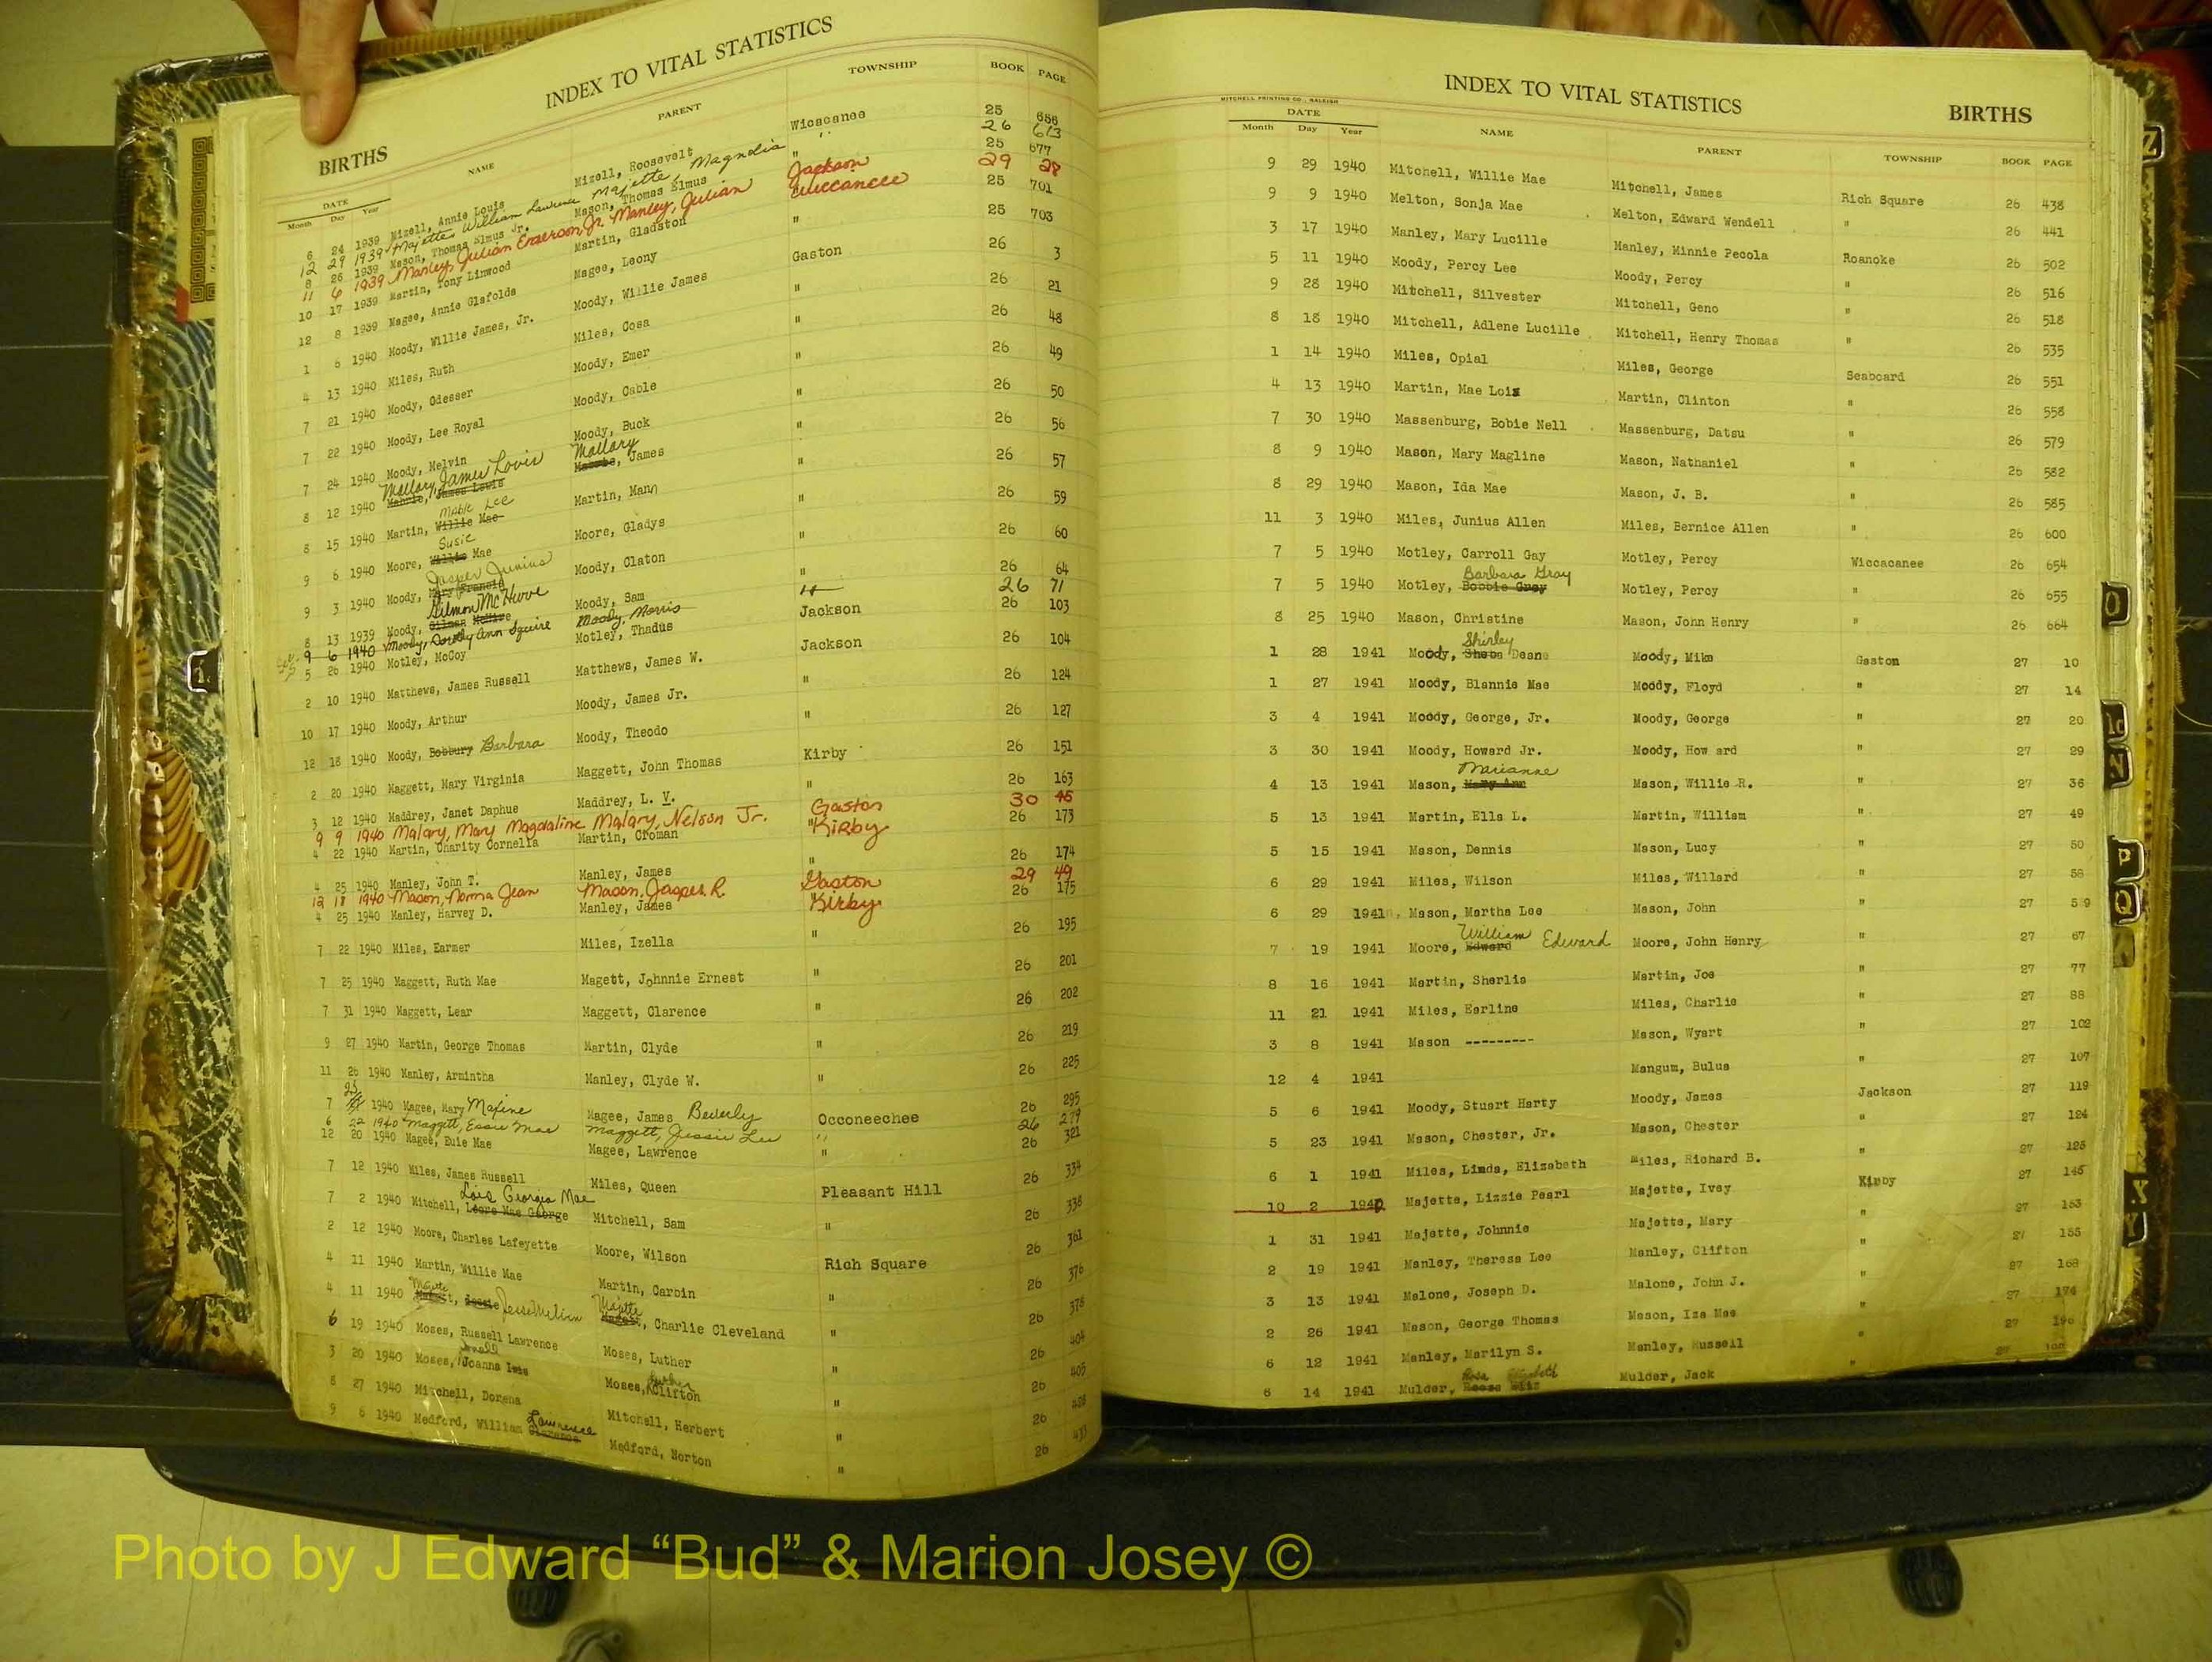 INDEX TO VITAL STATISTICS
BIRTHS
DATE
Month Day Year NAME PARENT TOWNSHIP BOOK PAGE
6 24 1939 Mizell, Annie Louis Mizell, Roosevelt Wicacanee 25 686
12 29 1939 Majette William Lawrence Majette, Magnolia " 26 613
8 26 1939 Mason, Thomas Elmus Jr. Mason, Thomas Elmus " 25 677
11 6 1939 Manley, Julian Emerson, Jr. Manley, Julian Jackson 29 28
10 17 1939 Martin, Tony Linwood Martin, Gladston Wiccanee 25 701
12 8 1939 Magee, Annie Glafolda Magee, Leony " 25 703
1 6 1940 Moody, Willie James, Jr. Moody, Willie James Gaston 26 3
4 13 1940 Miles, Ruth Miles, Cosa " 26 21
7 21 1940 Moody, Odesser Moody, Emer " 26 48
7 22 1940 Moody, Lee Royal Moody, Cable " 26 49
7 24 1940 Moody, Melvin Moody, Buck " 26 50
8 12 1940 Mallory, James Louis James Lewis Mallory, James " 26 56
8 15 1940 Martin, Mable Lee Willie Mae Martin, Mann " 26 57
9 6 1940 Moore, Susie Willie Mae Moore, Gladys " 26 59
9 3 1940 Moody, Jasper Junius Mary Francis Moody, Claton " 26 60
8 13 1939 Moody, Gilmon McHuve Moody, Sam " 26 64
9 6 1940 Moody, Dorothy Ann Squire Moody, Morris " 26 71
5 26 1940 Motley, McCoy Motley, Thadus Jackson 26 103
2 10 1940 Matthews, James Russell Matthews, James W. Jackson 26 104
10 17 1940 Moody, Arthur Moody, James Jr. " 26 124
12 18 1940 Moody, Bobbury Barbara Moody, Theodo " 26 127
2 20 1940 Maggett, Mary Virginia Maggett, John Thomas Kirby 26 151
3 12 1940 Maddrey, Janet Daphue Maddrey, L. V. " 26 163
9 9 1940 Malary, Mary Magdaline Malary, Nelson Jr. Gaston 30 45
4 22 1940 Martin, Charity Cornelia Martin, Croman " Kirby 26 173
4 25 1940 Manley, John T. Manley, James " 26 174
12 18 1940 Mason, Norma Jean Mason, Jasper R. Gaston 29 49
4 25 1940 Manley, Harvey D. Manley, James Kirby 26 175
7 22 1940 Miles, Earmer Miles, Izella " 26 195
7 25 1940 Maggett, Ruth Mae Magett, Johnnie Ernest " 26 201
7 31 1940 Maggett, Lear Maggett, Clarence " 26 202
9 27 1940 Martin, George Thomas Martin, Clyde " 26 219
11 26 1940 Manley, Armintha Manley, Clyde W. " 26 225
7 25 1940 Magee, Mary Maxine Magee, James Beverly Occoneechee 26 295
6 22 1940 Maggett, Essie Mae Maggett, Jessie Lee " 26 279
12 20 1940 Magee, Euie Mae Magee, Lawrence " 26 321
7 12 1940 Miles, James Russell Miles, Queen Pleasant Hill 26 334
7 2 1940 Mitchell, Lois Georgia Mae Leore Mae George Mitchell, Sam " 26 338
2 12 1940 Moore, Charles Lafeyette Moore, Wilson Rich Square 26 361
4 11 1940 Martin, Willie Mae Martin, Carbin " 26 376
4 11 1940 Majette Jessie Jesse Melvin Majette, Charlie Cleveland " 26 378
6 19 1940 Moses, Russell Lawrence Moses, Luther " 26 404
3 20 1940 Moses, Joanna Moses, Clifton " 26 405
8 27 1940 Mitchell, Dorena Mitchell, Herbert " 26
9 6 1940 Medford, William Lawrence Clarence Medford, Norton " 26 433
INDEX TO VITAL STATISTICS
BIRTHS
MITCHELL PRINTING CO., RALEIGH
DATE
Month Day Year NAME PARENT TOWNSHIP BOOK PAGE
9 29 1940 Mitchell, Willie Mae Mitchell, James Rich Square 26 438
9 9 1940 Melton, Sonja Mae Melton, Edward Wendell " 26 441
3 17 1940 Manley, Mary Lucille Manley, Minnie Pecola Roanoke 26 502
5 11 1940 Moody, Percy Lee Moody, Percy " 26 516
9 28 1940 Mitchell, Silvester Mitchell, Geno " 26 518
8 18 1940 Mitchell, Adlene Lucille Mitchell, Henry Thomas " 26 535
1 14 1940 Miles, Opial Miles, George Seaboard 26 551
4 13 1940 Martin, Mae Lois Martin, Clinton " 26 558
7 30 1940 Massenburg, Bobie Nell Massenburg, Datsu " 26 579
8 9 1940 Mason, Mary Magline Mason, Nathaniel " 26 582
8 29 1940 Mason, Ida Mae Mason, J. B. " 26 585
11 3 1940 Miles, Junius Allen Miles, Bernice Allen " 26 600
7 5 1940 Motley, Carroll Gay Motley, Percy Wiccacanee 26 654
7 5 1940 Motley, Barbara Gray Bobbie Guey Motley, Percy " 26 655
8 25 1940 Mason, Christine Mason, John Henry " 26 664
1 28 1941 Moody, Shirley Sheba Deane Moody, Mike Gaston 27 10
1 27 1941 Moody, Blannie Mae Moody, Floyd " 27 14
3 4 1941 Moody, George, Jr. Moody, George " 27 20
3 30 1941 Moody, Howard Jr. Moody, How ard " 27 29
4 13 1941 Mason, Marianne Mary Ann Mason, Willie R. " 27 36
5 13 1941 Martin, Ella L. Martin, William " 27 49
5 15 1941 Mason, Dennis Mason, Lucy " 27 50
6 29 1941 Miles, Wilson Miles, Willard " 27 58
6 29 1941 Mason, Martha Lee Mason, John " 27 59
7 19 1941 Moore, William Edward Edward Moore, John Henry " 27 67
8 16 1941 Martin, Sherlie Martin, Joe " 27 77
11 21 1941 Miles, Earline Miles, Charlie " 27 88
3 8 1941 Mason --------- Mason, Wyart " 27 102
12 4 1941 Mangum, Bulus " 27 107
5 6 1941 Moody, Stuart Harty Moody, James Jackson 27 119
5 23 1941 Mason, Chester, Jr. Mason, Chester " 27 124
6 1 1941 Miles, Linda, Elizabeth Miles, Richard B. " 27 125
10 2 1940 Majette, Lizzie Pearl Majette, Ivey Kirby 27 145
1 31 1941 Majette, Johnnie Majette, Mary " 27 153
2 19 1941 Manley, Theresa Lee Manley, Clifton " 27 155
3 13 1941 Malone, Joseph D. Malone, John J. " 27 168
2 26 1941 Mason, George Thomas Mason, Iza Mae " 27 174
6 12 1941 Manley, Marilyn S. Manley, Russell " 27 196
6 14 1941 Mulder, Rosa Elizabeth Mulder, Jack "
Photo by J Edward “Bud” & Marion Josey ©